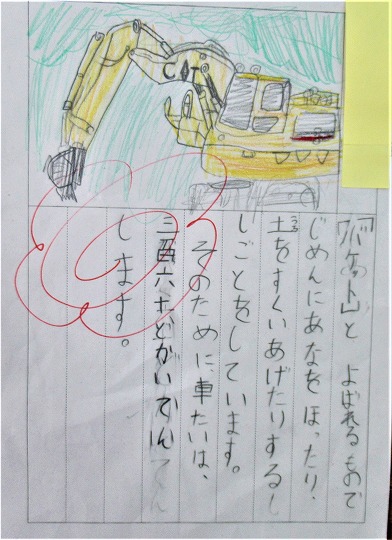 CAT
「バケット」と よばれるもので
じめんにあなをほったり、
土をすくいあげたりするし
しごとをしています。
そのために、車たいは、
三百六十どかいてん
します。